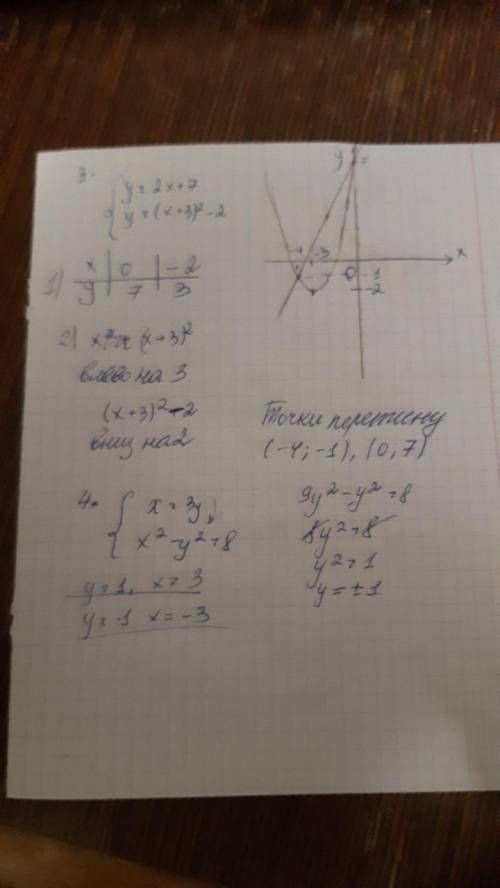 3.
{ y = 2x+7
y = (x+3)²-2
1) x | 0 | -2
y | 7 | 3
2) x² → (x+3)²
влево на 3
(x+3)²-2
вниз на 2
y 7
-4 -3 x
0 -1
-2
Точки перетину
(-4; -1), (0, 7)
4. { x = 3y
x² - y² = 8
y = 1, x = 3
y = -1 x = -3
9y² - y² = 8
8y² = 8
y² = 1
y = ±1